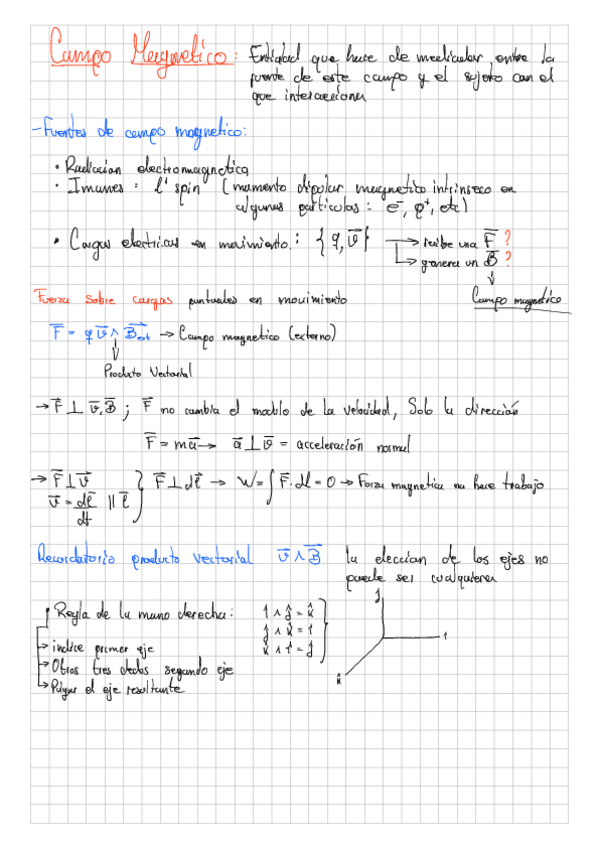 Campo Magnetico: Entidad que hace de mediador entre la
fuente de este campo y el sujeto con el
que interacciona
- Fuentes de campo magnetico:
• Radiacion electromagnetica
• Imanes: l' spin (momento dipolar magnetico intrinseco en
algunas particulas: e⁻, p⁺, etc)
• Cargas electricas en movimiento: {q, v⃗} → recibe una F⃗ ?
↳ genera un B⃗ ?
↓
Campo magnetico
Fuerza sobre cargas puntuales en movimiento
F⃗ = q v⃗ ∧ B⃗ext → Campo magnetico (externo)
↓
Producto Vectorial
→ F⃗ ⊥ v⃗, B⃗ ; F⃗ no cambia el modulo de la velocidad, Solo la dirección
F⃗ = ma⃗ → a⃗ ⊥ v⃗ = acceleración normal
→ F⃗ ⊥ v⃗ } F⃗ ⊥ dl⃗ → W = ∫ F⃗ · dl = 0 → Forza magnetica no hace trabajo
v⃗ = dl⃗/dt ∥ l⃗
Recordatorio producto vectorial v⃗ ∧ B⃗ la eleccion de los ejes no
puede ser cualquiera
Regla de la mano derecha: î ∧ ĵ = k̂
ĵ ∧ k̂ = î
k̂ ∧ î = ĵ
→ indice primer eje
→ Otros tres dedos segundo eje
→ Pulgar el eje resultante
ĵ
î
k̂